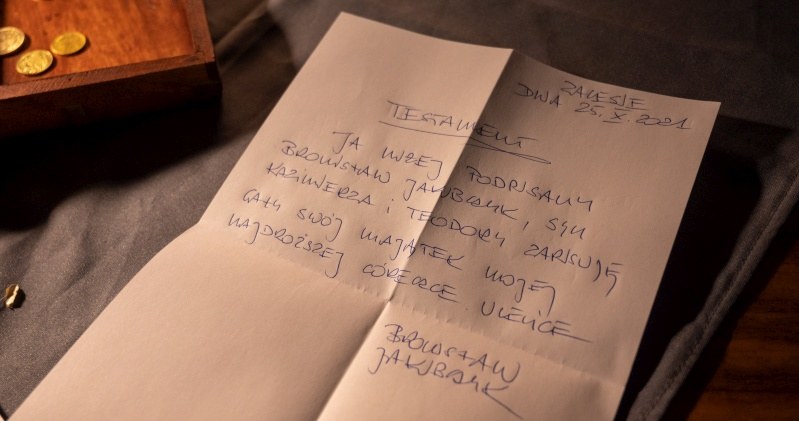 ZALESIE
DNIA 25.X.2021
TESTAMENT
JA NIŻEJ PODPISANY
BRONISŁAW JAKUBIAK, SYN
KAZIMIERZA I TEODORY ZAPISUJĘ
CAŁY SWÓJ MAJĄTEK MOJEJ
NAJDROŻSZEJ CÓRECZCE ULEŃCE
BRONISŁAW
JAKUBIAK